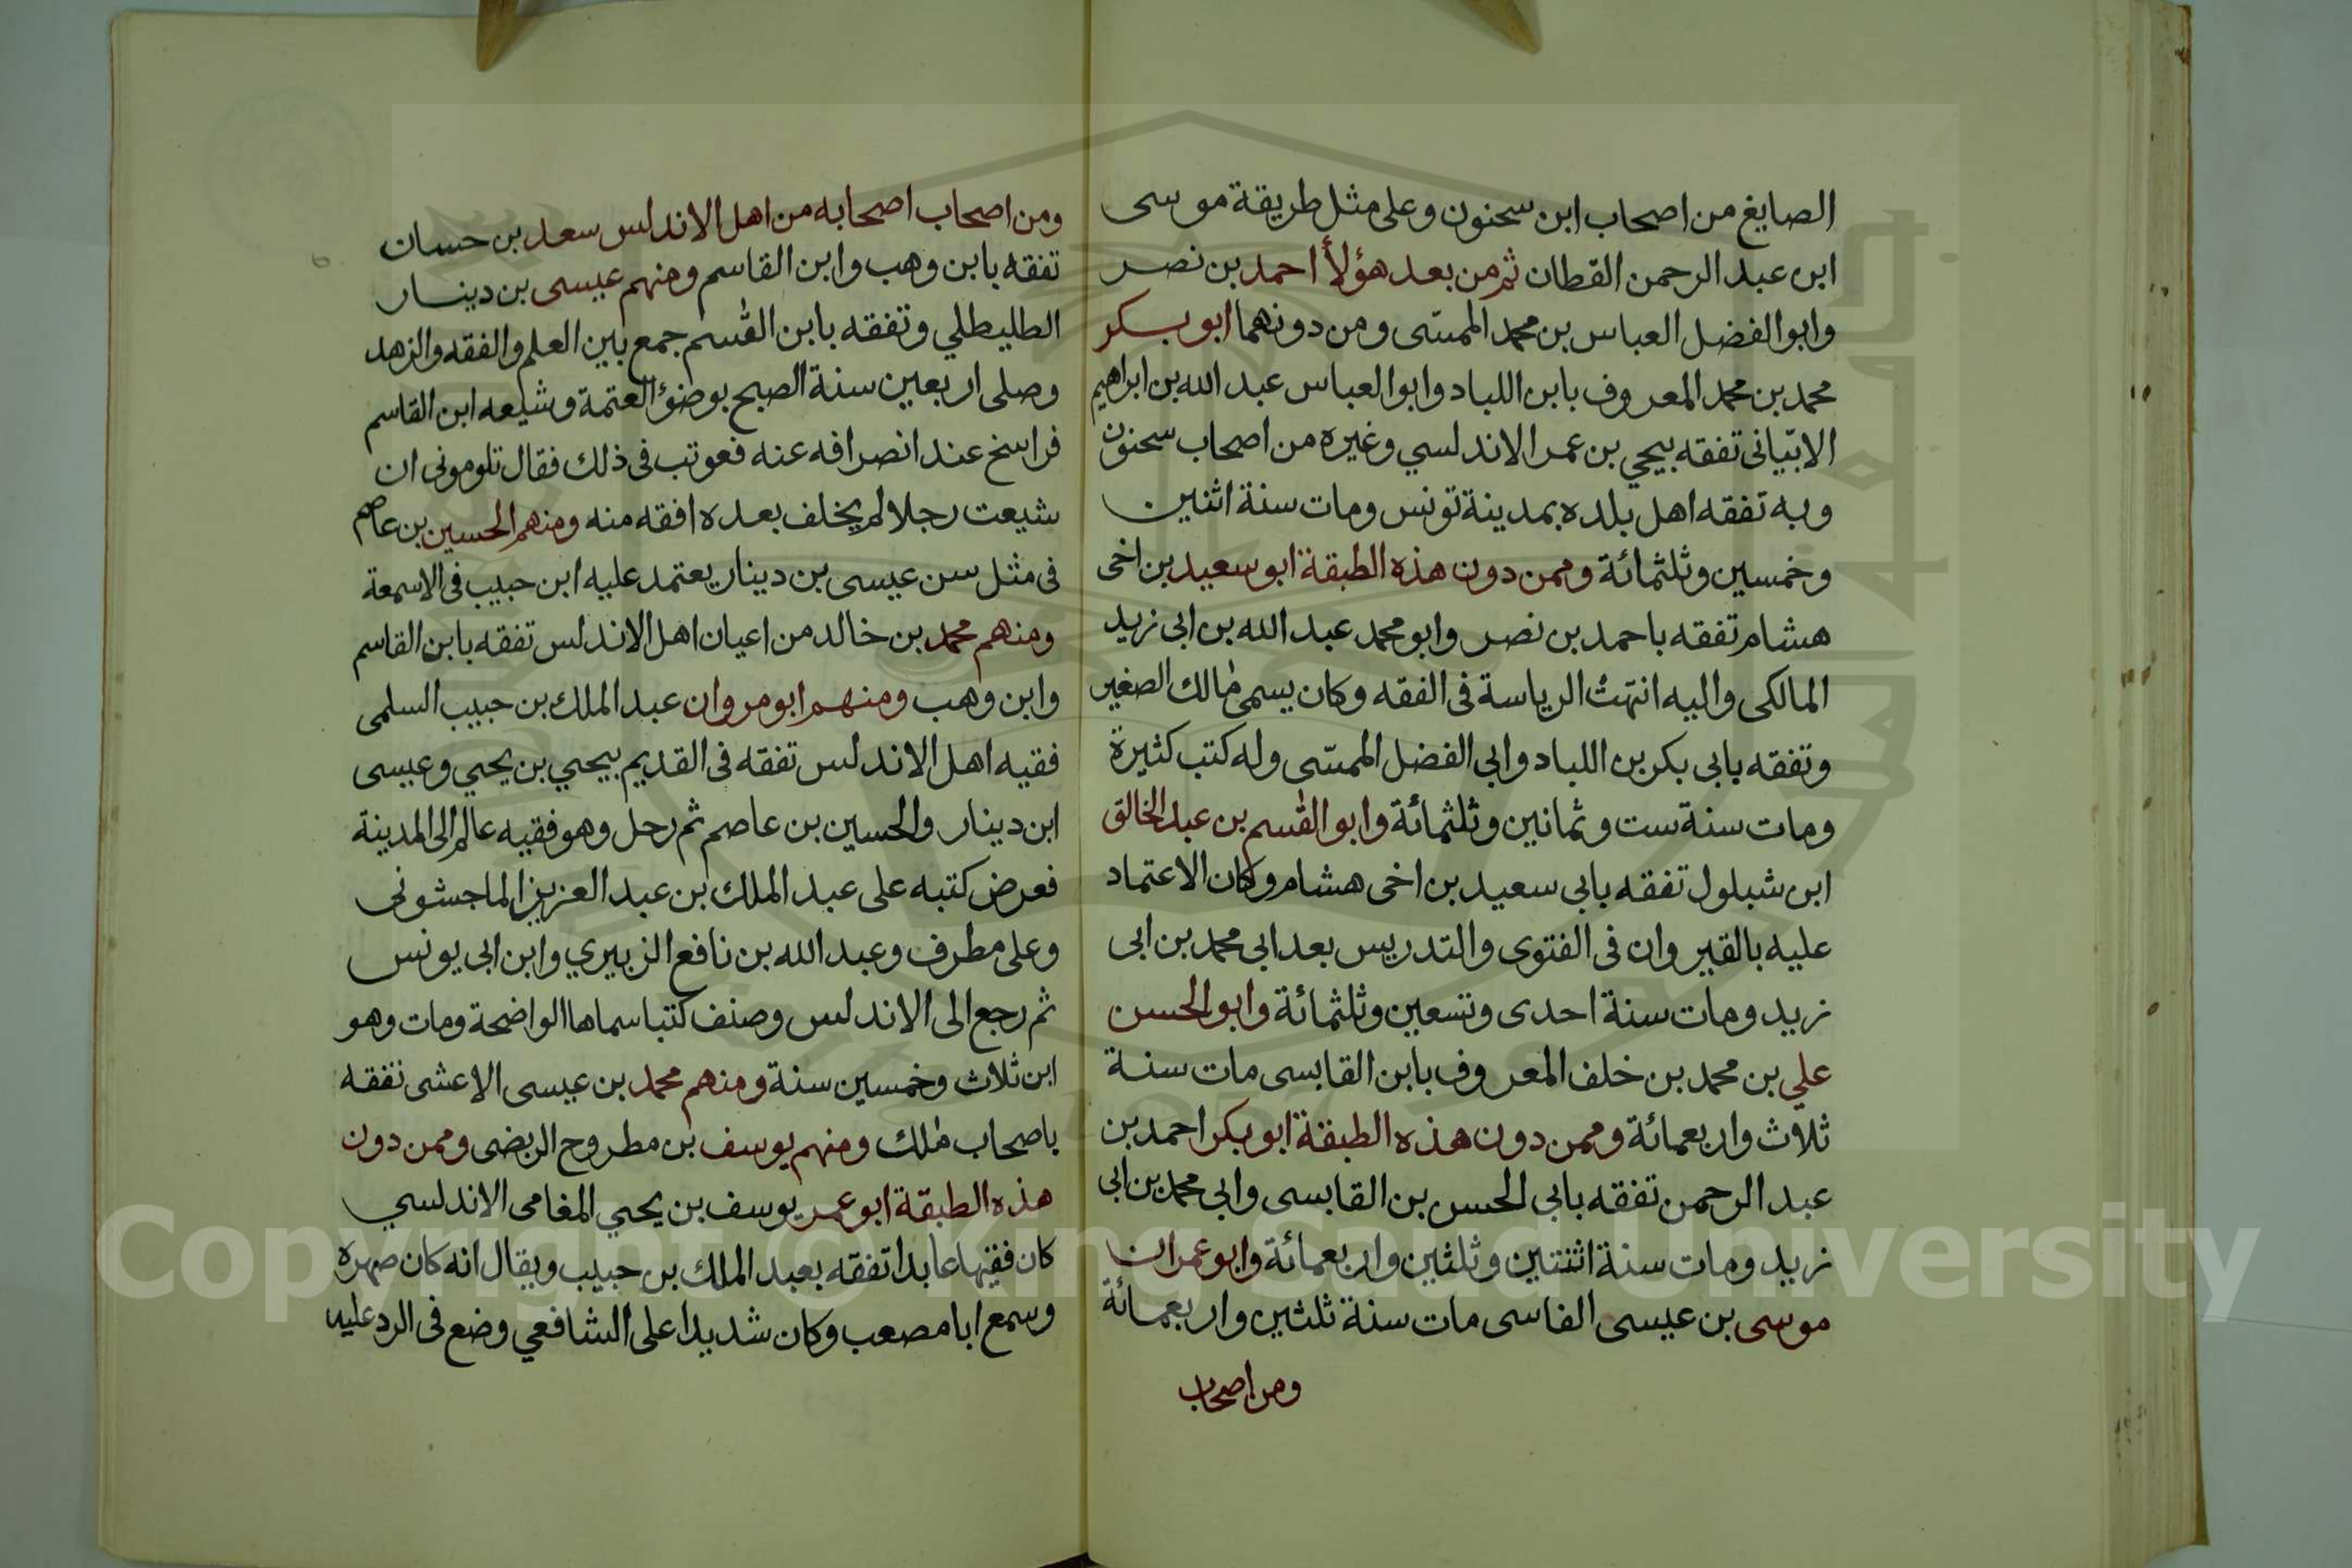 الصايغ من اصحاب ابن سحنون وعلى مثل طريقة موسى
ابن عبد الرحمن القطان ثم من بعد هؤلأ احمد بن نصر
وابو الفضل العباس بن محمد الممسّى ومن دونهما ابو بكر
محمد بن محمد المعروف بابن اللباد وابو العباس عبد الله بن ابراهيم
الابّيانى تفقه بيحي بن عمر الاندلسي وغيره من اصحاب سحنون
وبه تفقه اهل بلده بمدينة تونس ومات سنة اثنين
وخمسين وثلثمائة وممن دون هذه الطبقة ابو سعيد بن اخى
هشام تفقه باحمد بن نصر وابو محمد عبد الله بن ابى زيد
المالكى واليه انتهت الرياسة فى الفقه وكان يسمى مالك الصغير
وتفقه بابى بكر بن اللباد وابي الفضل الممسّى وله كتب كثيرة
ومات سنة ست وثمانين وثلثمائة وابو القسم بن عبد الخالق
ابن شبلول تفقه بابي سعيد بن اخى هشام وكان الاعتماد
عليه بالقيروان فى الفتوى والتدريس بعد ابي محمد بن ابى
زيد ومات سنة احدى وتسعين وثلثمائة وابو الحسن
علي بن محمد بن خلف المعروف بابن القابسى مات سنة
ثلاث واربعمائة وممن دون هذه الطبقة ابو بكر احمد بن
عبد الرحمن تفقه بابي الحسن بن القابسى وابي محمد بن ابي
زيد ومات سنة اثنتين وثلثين واربعمائة وابو عمران
موسى بن عيسى الفاسى مات سنة ثلثين واربعمائة
ومن اصحاب
ومن اصحاب اصحابه من اهل الاندلس سعد بن حسان
تفقه بابن وهب وابن القاسم ومنهم عيسى بن دينار
الطليطلي وتفقه بابن القسم جمع بين العلم والفقه والزهد
وصلى اربعين سنة الصبح بوضؤ العتمة وشيعه ابن القاسم
فراسخ عند انصرافه عنه فعوتب فى ذلك فقال تلومونى ان
شيعت رجلا لم يخلف بعده افقه منه ومنهم الحسين بن عاصم
فى مثل سن عيسى بن دينار يعتمد عليه ابن حبيب فى الاسمعة
ومنهم محمد بن خالد من اعيان اهل الاندلس تفقه بابن القاسم
وابن وهب ومنهم ابو مروان عبد الملك بن حبيب السلمى
فقيه اهل الاندلس تفقه فى القديم بيحيي بن يحيي وعيسى
ابن دينار والحسين بن عاصم ثم رحل وهو فقيه عالم الى المدينة
فعرض كتبه على عبد الملك بن عبد العزيز الماجشونى
وعلى مطرف وعبد الله بن نافع الزبيري وابن ابى يونس
ثم رجع الى الاندلس وصنف كتبا سماها الواضحة ومات وهو
ابن ثلاث وخمسين سنة ومنهم محمد بن عيسى الاعشى تفقه
باصحاب ملك ومنهم يوسف بن مطروح الربضى وممن دون
هذه الطبقة ابو عمر يوسف بن يحيي المغامى الاندلسي
كان فقيها عابدا تفقه بعبد الملك بن حبيب ويقال انه كان صهره
وسمع ابا مصعب وكان شديدا على الشافعي وضع فى الرد عليه
Copyright © King Saud University